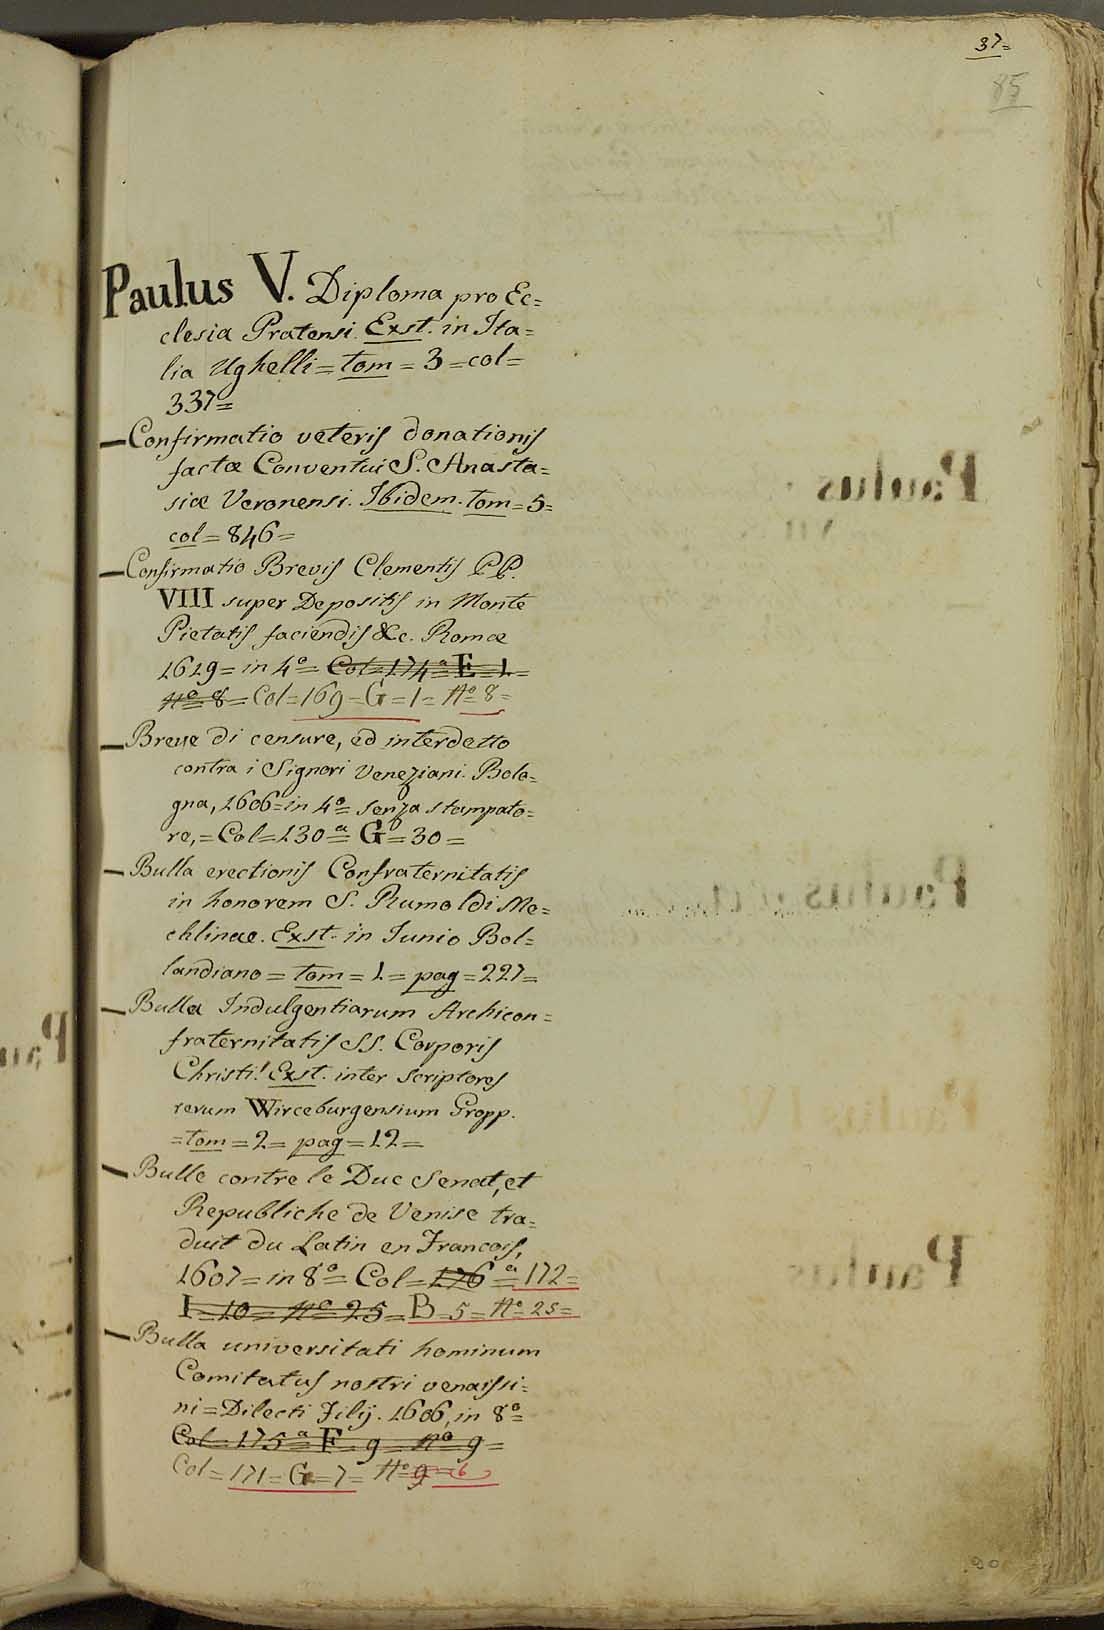 37=
85
Paulus V. Diploma pro Ec=
clesia Pratensi. Exst. in Ita=
lia Ughelli = tom = 3 = col =
337=
Confirmatio veteris donationis
factæ Conventui S. Anasta=
siæ Veronensi. Ibidem. tom = 5=
col = 846=
Confirmatio Brevis Clementis PP.
VIII super Depositis in Monte
Pietatis faciendis &c. Romæ
1619= in 4º= Col=174ª E=1=
Nº= 8= Col=169=G=1= Nº=8=
Breve di censure, ed interdetto
contra i Signori Veneziani. Bolo=
gna, 1606=in 4º= senza stampato=
re,= Col=130ª= G=30=
Bulla erectionis Confraternitatis
in honorem S. Rumoldi Me=
chlinae. Exst. in Junio Bol=
landiano = tom = 1 = pag = 227=
Bulla Indulgentiarum Archicon=
fraternitatis SS. Corporis
Christi! Exst. inter Scriptores
rerum Wirceburgensium Gropp.
=tom = 2= pag = 12=
Bulle contre le Duc Senat, et
Republiche de Venise tra=
duit du Latin en Francois,
1607= in 8º= Col= 176ª= 172=
I=10= Nº 25= B=5= Nº=25=
Bulla universitati hominum
Comitatus nostri venaissi=
ni= Dilecti Filij. 1606, in 8º=
Col=175ª F=9= nº 9=
Col=171=G=7= Nº=9=6
90